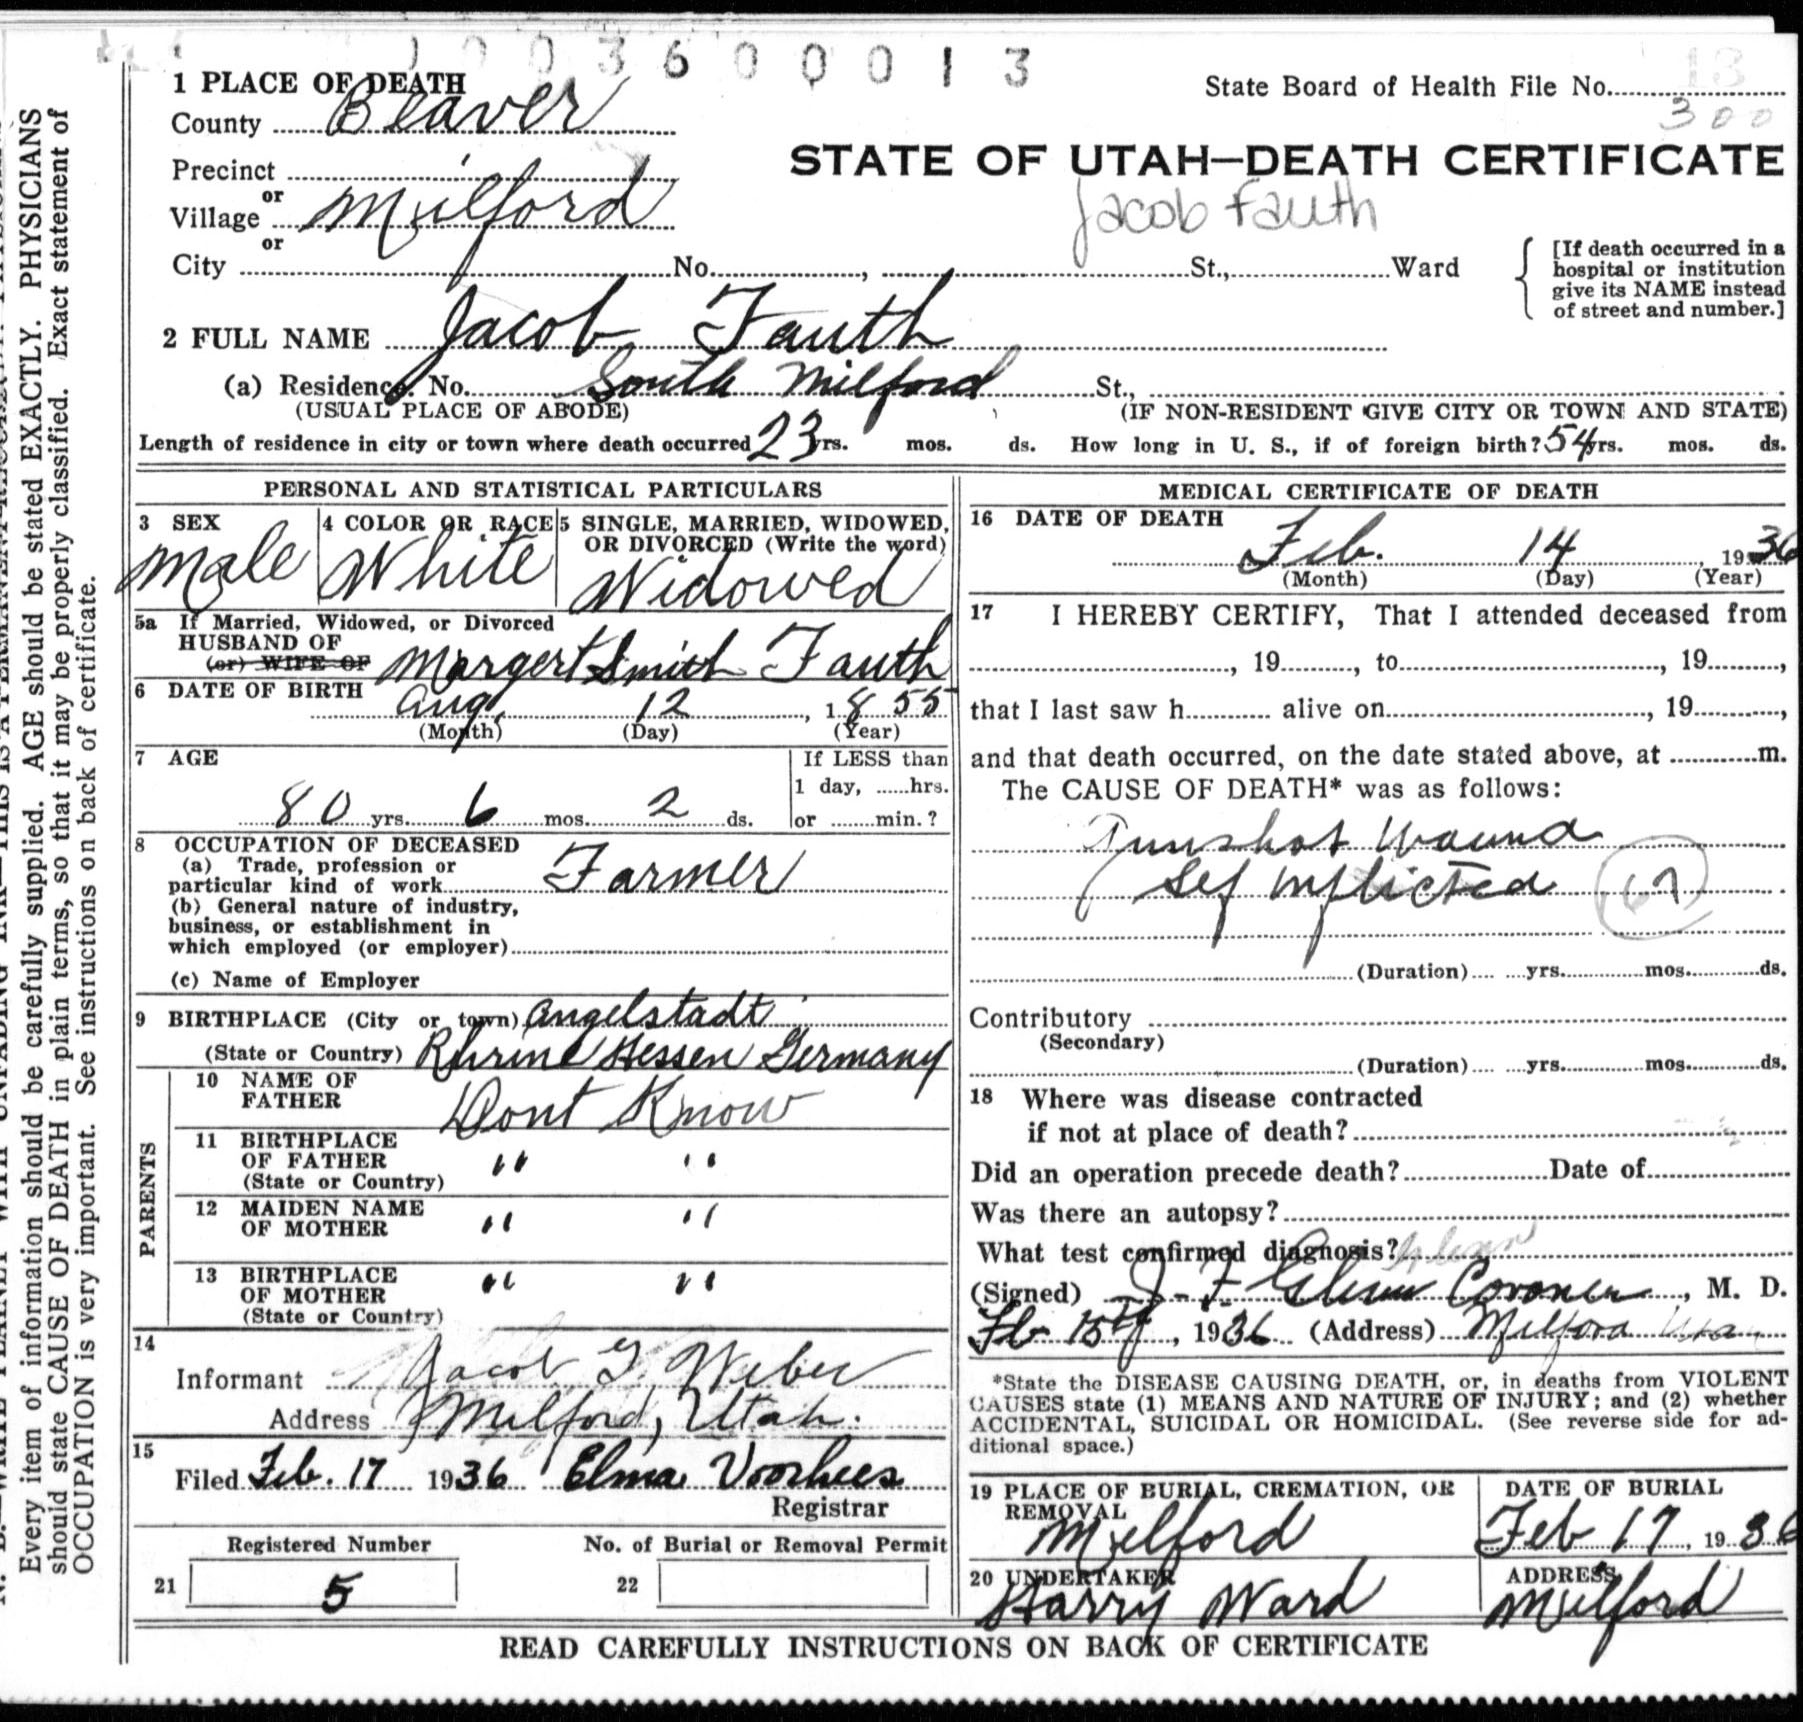 1003600013
1 PLACE OF DEATH
State Board of Health File No. 13
300
County Beaver
STATE OF UTAH—DEATH CERTIFICATE
Precinct
or
Village Milford
Jacob Fauth
or
City No. , St., Ward
[If death occurred in a
hospital or institution
give its NAME instead
of street and number.]
2 FULL NAME Jacob Fauth
(a) Residence. No. South Milford St.,
(USUAL PLACE OF ABODE) (IF NON-RESIDENT GIVE CITY OR TOWN AND STATE)
Length of residence in city or town where death occurred 23 yrs. mos. ds. How long in U. S., if of foreign birth? 54 yrs. mos. ds.
PERSONAL AND STATISTICAL PARTICULARS
3 SEX
Male
4 COLOR OR RACE
White
5 SINGLE, MARRIED, WIDOWED,
OR DIVORCED (Write the word)
Widowed
5a If Married, Widowed, or Divorced
HUSBAND OF
(or) WIFE OF Margert Smith Fauth
6 DATE OF BIRTH
Aug. 12, 1855
(Month) (Day) (Year)
7 AGE
80 yrs. 6 mos. 2 ds.
If LESS than
1 day, ......hrs.
or ......min.?
8 OCCUPATION OF DECEASED
(a) Trade, profession or
particular kind of work Farmer
(b) General nature of industry,
business, or establishment in
which employed (or employer)
(c) Name of Employer
9 BIRTHPLACE (City or town) Angelstadt
(State or Country) Rhrine Hessen Germany
PARENTS
10 NAME OF
FATHER Dont Know
11 BIRTHPLACE
OF FATHER " "
(State or Country)
12 MAIDEN NAME
OF MOTHER " "
13 BIRTHPLACE
OF MOTHER " "
(State or Country)
14
Informant Jacob G. Weber
Address Milford, Utah.
15
Filed Feb. 17 1936 Elma Voorhees
Registrar
Registered Number No. of Burial or Removal Permit
21 5 22
MEDICAL CERTIFICATE OF DEATH
16 DATE OF DEATH
Feb. 14, 1936
(Month) (Day) (Year)
17 I HEREBY CERTIFY, That I attended deceased from
, 19 , to , 19 ,
that I last saw h alive on , 19 ,
and that death occurred, on the date stated above, at m.
The CAUSE OF DEATH* was as follows:
Gunshot Wound
Self Inflicted
(Duration) yrs. mos. ds.
Contributory
(Secondary)
(Duration) yrs. mos. ds.
18 Where was disease contracted
if not at place of death?
Did an operation precede death? Date of
Was there an autopsy?
What test confirmed diagnosis?
(Signed) J. F. Glenn Coroner, M. D.
Feb 15th, 1936 (Address) Milford Utah
*State the DISEASE CAUSING DEATH, or, in deaths from VIOLENT
CAUSES state (1) MEANS AND NATURE OF INJURY; and (2) whether
ACCIDENTAL, SUICIDAL OR HOMICIDAL. (See reverse side for ad-
ditional space.)
19 PLACE OF BURIAL, CREMATION, OR
REMOVAL
Milford
DATE OF BURIAL
Feb 17, 1936
20 UNDERTAKER
Harry Ward
ADDRESS
Milford
READ CAREFULLY INSTRUCTIONS ON BACK OF CERTIFICATE
Every item of information should be carefully supplied. AGE should be stated EXACTLY. PHYSICIANS
should state CAUSE OF DEATH in plain terms, so that it may be properly classified. Exact statement of
OCCUPATION is very important. See instructions on back of certificate.